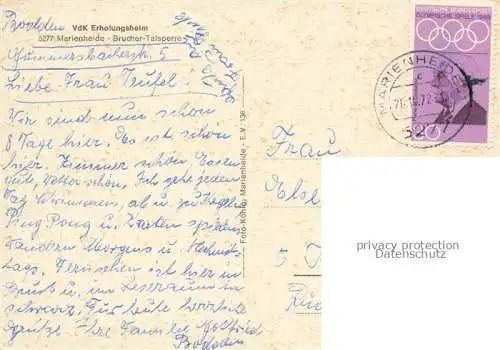 Bodden
VdK Erholungsheim
5277 Marienheide - Brucher-Talsperre
Gummersbacherstr. 5
Liebe Frau Teufel!
Wir sind nun schon
8 Tage hier. Es ist schön
hier. Zimmer schön Essen
gut, Wetter schön. Ich gehe jeden
Tag Schwimmen, ab u. zu Kegeln
Ping Pong u. Karten spielen
Wandern Morgens u. Nachmit-
tags. Fernsehen ist hier in
Bunt u. im Leseraum in
schwarz. Für heute herzliche
Grüße. Ihre Familie Gottfried
Bodden
Foto-König, Marienheide - E.V. 136
DEUTSCHE BUNDESPOST
OLYMPISCHE SPIELE 1968
MARIENHEIDE
.72
20
Frau
Else
5
privacy protection
Datenschutz